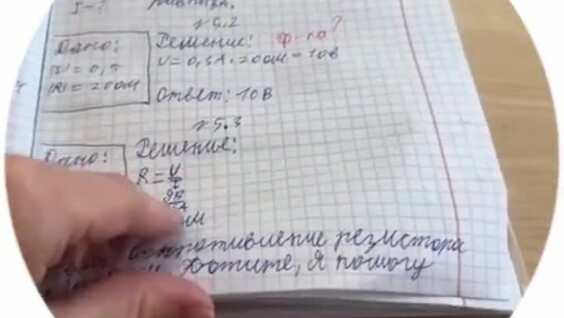 I-?
№5.2
Дано:
|U| = 0,5
|R| = 20 Ом
Решение: ф-ла?
U = 0,5А·20 Ом = 10В
Ответ: 10В
№5.3
Дано:
Решение:
R = U
Ом
сопротивление резистора
Хотите, я помогу